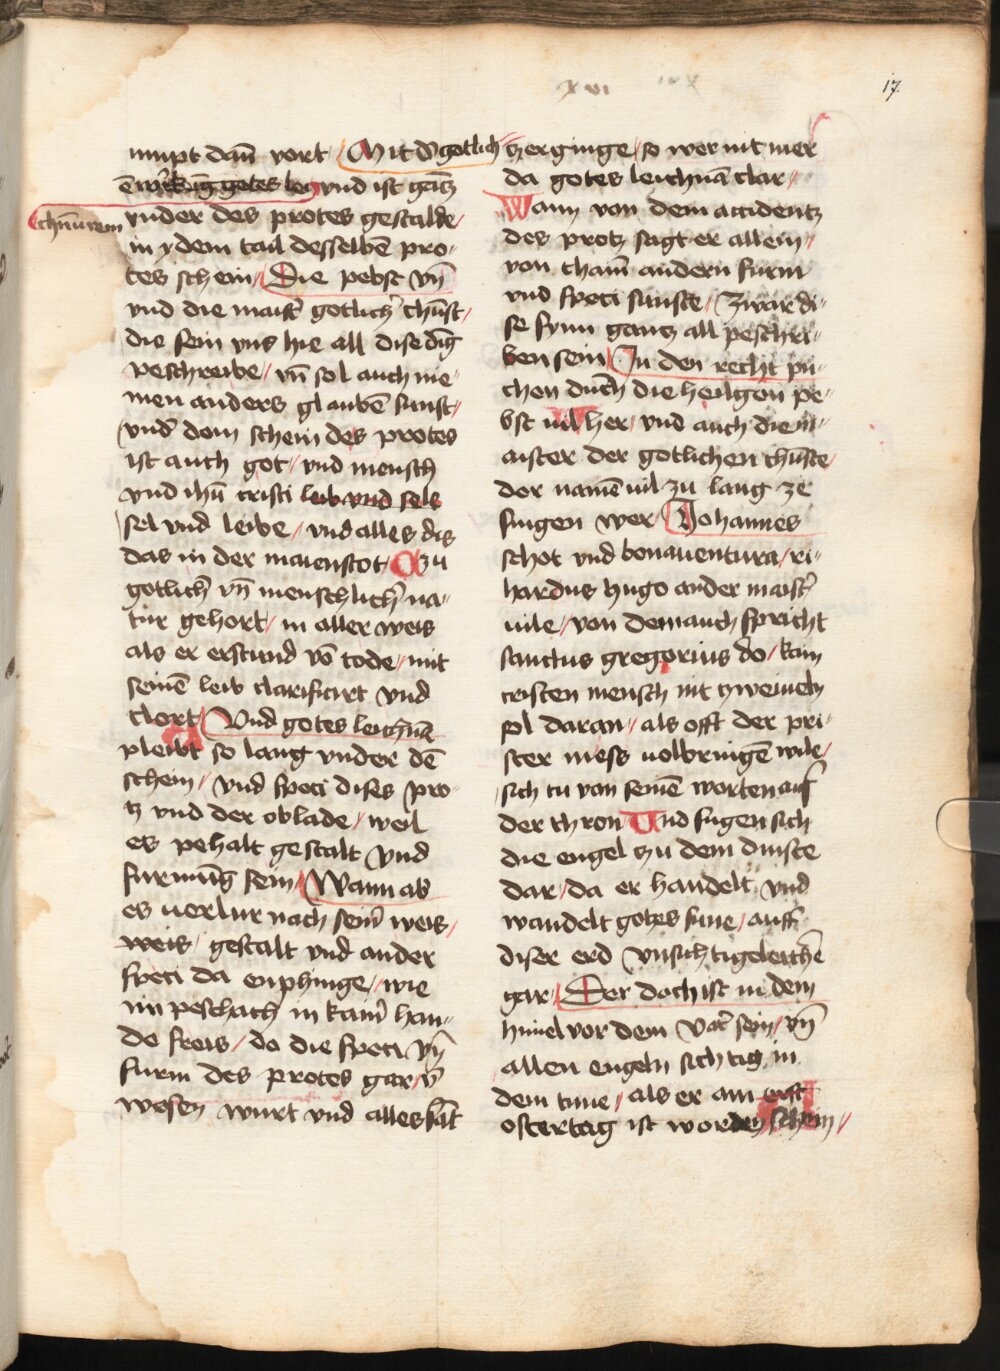 xvi
17.
nympt dan̄ vort / Mit d' gotlich
ē würkūg getes leg vnd ist gātz
chūurem vnder des protes gestalde /
in ydem tail desselbē pro⸗
tes schein / Die pebst vn̄
vnd die maist' gotlich' chūst /
die sein vns hie all dise dīg
peschreibe / vn̄ sol auch nie⸗
men anders glaubē sunst /
vnd' dem schein des protes
ist auch got / vnd mensch
vnd ihū cristi leib vnd sele
sel vnd leibe / vnd alles dis
das in der maienstot / Czu
gotlich' vn̄ menschlich' na⸗
tur gehort / in aller weis
als er erstund vō tode / mit
seinē leib clarificirt vnd
clort / Vnd gotes leichnā
pleibt so lang vnder dē
schein / vnd speci dises pro⸗
tz vnd der oblade / weil
es pehalt gestalt vnd
furmūg sein / Wann ab
es uerlur nach seim̄ weis /
weis / gestalt vnd ander
speci da enphinge / wie
im peschach in kaim̄ han⸗
de freis / do die speci vn̄
furm des protes gar / v̄
wesen wurt vnd alles sāt
tzerginge / so wer nit mer
da gotes leichnā clar /
Wann von dem accidentz
des protz sagt er allein /
von chaim̄ andern furm
vnd speci sunste / Zwar di⸗
se synn gantz all peschri⸗
ben sein / In den recht pu⸗
chen durch die heilgen pe⸗
bst uil her / vnd auch die m⸗
aister der gotlichen chūste /
der namē uil zu lang ze
singen wer / Johannes
schot vnd bonauentura / ri⸗
hardus hugo ander maist'
uile / von dem auch spricht
sanctus gregorius do / kain
cristen mensch nit tzweiueln
sol daran / als offt der pri⸗
ster mess uolbringē wile /
sich tu von seinē worten auf
der thron Vnd fugen sich
die engel tzu dem dinste
dar / da er handelt vnd
wandelt gotes sune / auff
diser erd vnsichtigeleichē
gar / Der doch ist in dem
himel vor dem vat' sein / vn̄
allen engeln sichtig in
dem trone / als er am erst
ostertag ist worden schein /